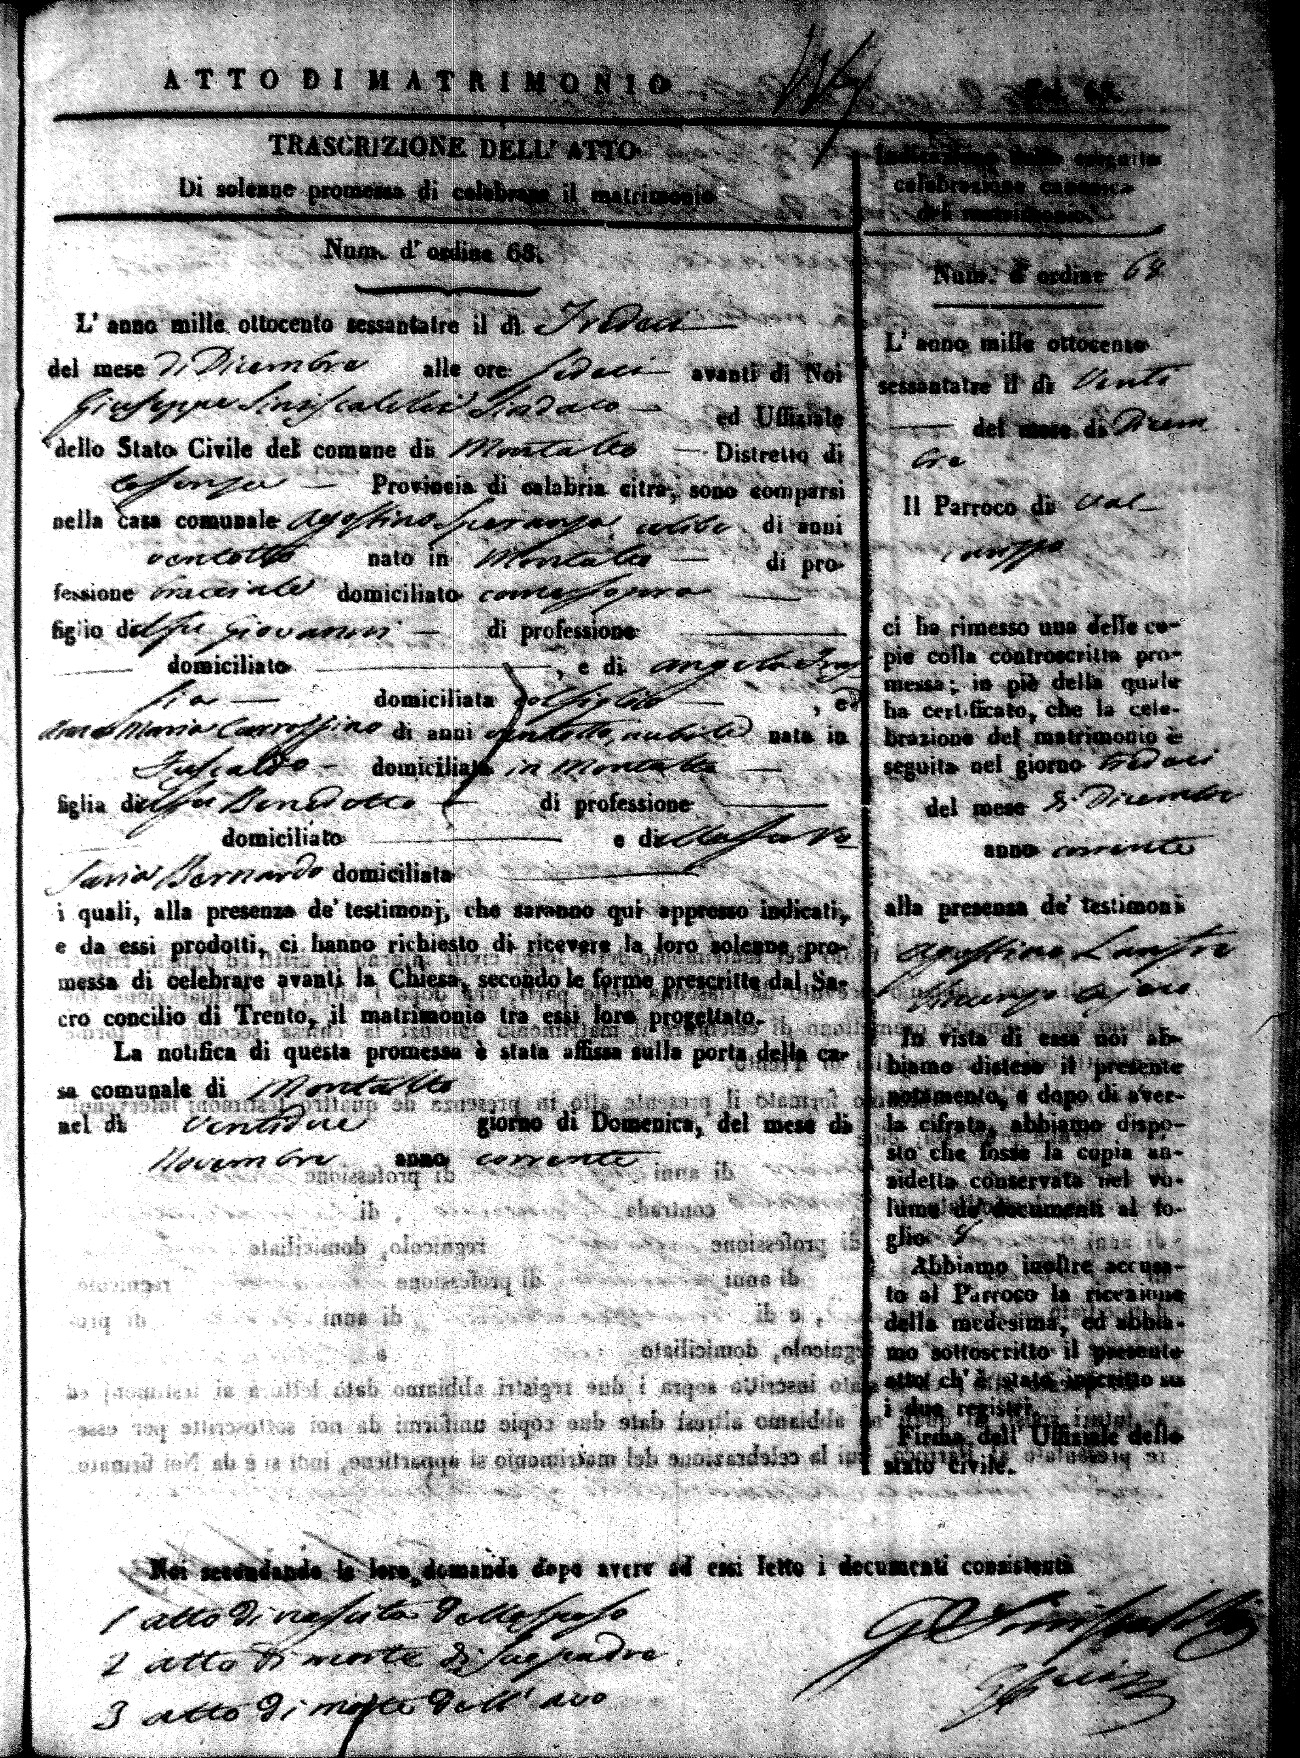 ATTO DI MATRIMONIO
TRASCRIZIONE DELL' ATTO
Di solenne promessa di celebrare il matrimonio
Num. d' ordine 68.
L' anno mille ottocento sessantatre il dì Tredeci
del mese di Dicembre alle ore sedeci avanti di Noi
Giuseppe Siniscalchi Sindaco ed Uffiziale
dello Stato Civile del comune di Montalto Distretto di
Cosenza Provincia di calabria citra, sono comparsi
nella casa comunale Agostino Speranza celibe di anni
ventotto nato in Montalto di pro-
fessione bracciale domiciliato comesopra
figlio del fu Giovanni di professione
domiciliato , e di Angela
domiciliata col figlio , ed
Maria di anni ventotto, nubile nata in
Fuscaldo domiciliata in Montalto
figlia del fu Benedetto di professione
domiciliato e di
Saria Bernardo domiciliata
i quali, alla presenza de' testimonj, che saranno qui appresso indicati,
e da essi prodotti, ci hanno richiesto di ricevere la loro solenne pro-
messa di celebrare avanti la Chiesa, secondo le forme prescritte dal Sa-
cro concilio di Trento, il matrimonio tra essi loro progettato.
La notifica di questa promessa è stata affissa sulla porta della ca-
sa comunale di Montalto
nel dì ventidue giorno di Domenica, del mese di
Novembre anno corrente
Noi secondando la loro domanda dopo avere ad essi letto i documenti consistenti
1 atto di nascita dello sposo
2 atto di morte di suo padre
3 atto di morte dell' avo
Indicazione della seguita
celebrazione canonica
del matrimonio.
Num. d' ordine 68
L' anno mille ottocento
sessantatre il dì Venti
del mese di Dicem
bre
Il Parroco di
ci ha rimesso una delle co-
pie colla controscritta pro-
messa; in piè della quale
ha certificato, che la cele-
brazione del matrimonio è
seguita nel giorno tredeci
del mese di Dicembre
anno corrente
alla presenza de' testimoni
Agostino
In vista di essa noi ab-
biamo disteso il presente
notamento, e dopo di aver-
la cifrata, abbiamo dispo-
sto che fosse la copia an-
zidetta conservata nel vo-
lume de' documenti al fo-
glio 8
Abbiamo inoltre accusa-
to al Parroco la ricezione
della medesima, ed abbia-
mo sottoscritto il presente
atto ch' è stato inscritto su
i due registri.
Firma dell' Uffiziale dello
stato civile.